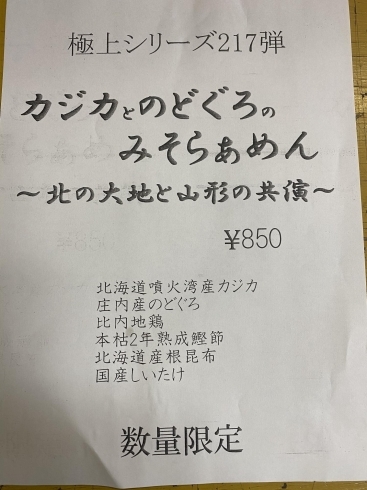 極上シリーズ217弾
カジカとのどぐろの
みそらぁめん
～北の大地と山形の共演～
¥850
北海道噴火湾産カジカ
庄内産のどぐろ
比内地鶏
本枯2年熟成鰹節
北海道産根昆布
国産しいたけ
数量限定